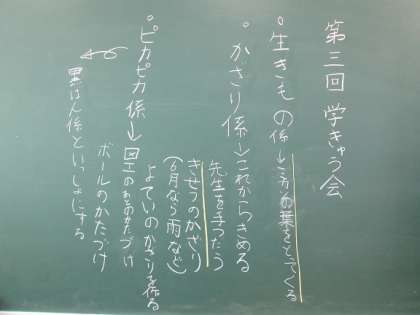 第三回 学きゅう会
・生きもの係→こうたの葉をとってくる
・かざり係→これからきめる
先生を手つだう
きせつのかざり
(6月なら雨など)
よていのかざりを係る
・ピカピカ係→図工のもののかたづけ
ボールのかたづけ
黒ばん係といっしょにする